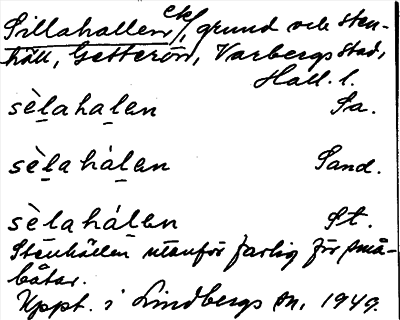 Sillahallen, ek/, grund och sten-
häll, Getterön, Varbergs stad,
Hall. l.
sèlahalen Sa.
sèlahálen Sand.
sèlahálen St.
Stenhällen utanför farlig för små-
båtar.
Uppt. i Lindbergs sn. 1949.